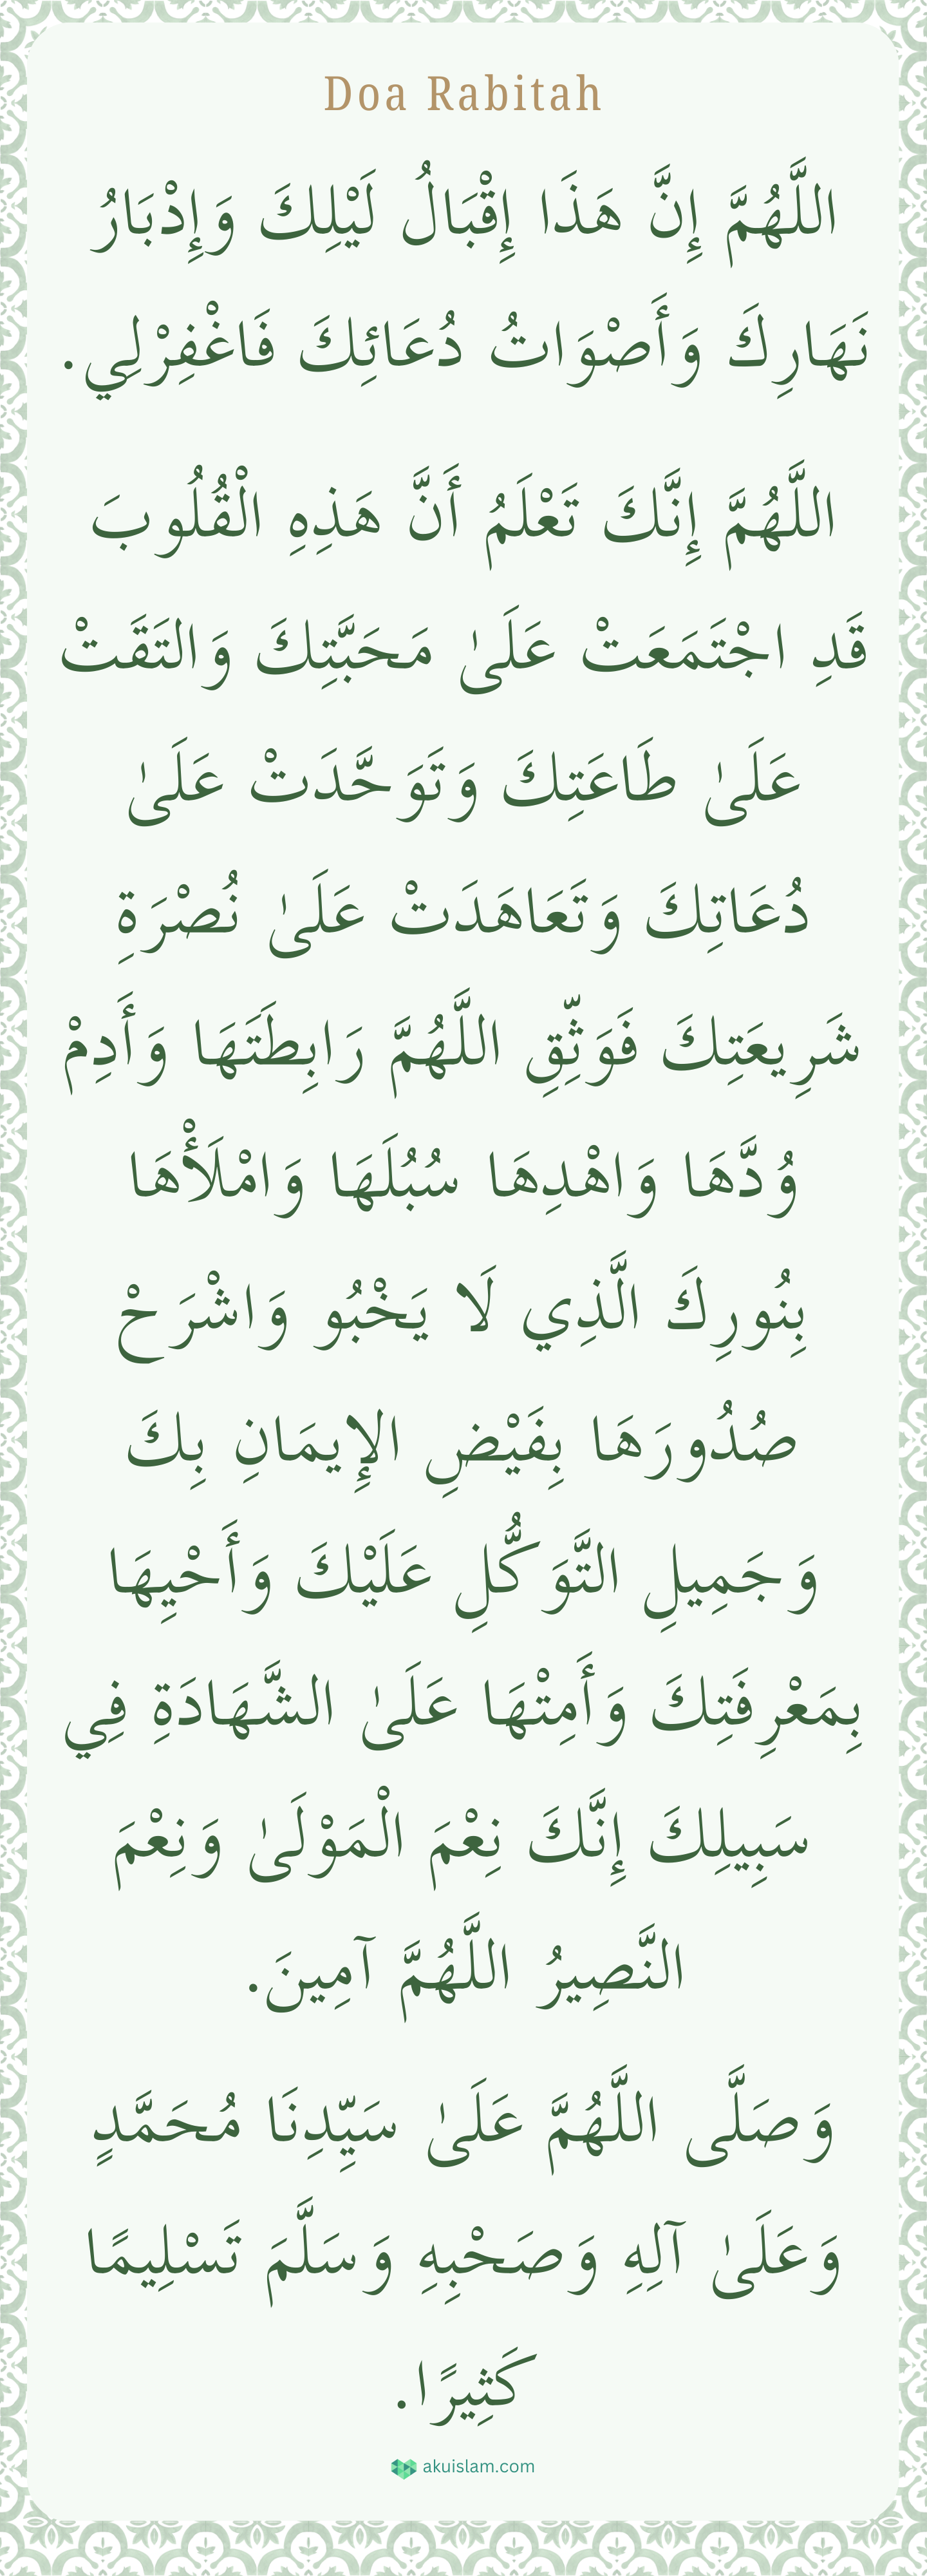 Doa Rabitah
اللَّهُمَّ إِنَّ هَذَا إِقْبَالُ لَيْلِكَ وَإِدْبَارُ
نَهَارِكَ وَأَصْوَاتُ دُعَائِكَ فَاغْفِرْلِي.
اللَّهُمَّ إِنَّكَ تَعْلَمُ أَنَّ هَذِهِ الْقُلُوبَ
قَدِ اجْتَمَعَتْ عَلَىٰ مَحَبَّتِكَ وَالتَقَتْ
عَلَىٰ طَاعَتِكَ وَتَوَحَّدَتْ عَلَىٰ
دُعَاتِكَ وَتَعَاهَدَتْ عَلَىٰ نُصْرَةِ
شَرِيعَتِكَ فَوَثِّقِ اللَّهُمَّ رَابِطَتَهَا وَأَدِمْ
وُدَّهَا وَاهْدِهَا سُبُلَهَا وَامْلَأْهَا
بِنُورِكَ الَّذِي لَا يَخْبُو وَاشْرَحْ
صُدُورَهَا بِفَيْضِ الإِيمَانِ بِكَ
وَجَمِيلِ التَّوَكُّلِ عَلَيْكَ وَأَحْيِهَا
بِمَعْرِفَتِكَ وَأَمِتْهَا عَلَىٰ الشَّهَادَةِ فِي
سَبِيلِكَ إِنَّكَ نِعْمَ الْمَوْلَىٰ وَنِعْمَ
النَّصِيرُ اللَّهُمَّ آمِينَ.
وَصَلَّى اللَّهُمَّ عَلَىٰ سَيِّدِنَا مُحَمَّدٍ
وَعَلَىٰ آلِهِ وَصَحْبِهِ وَسَلَّمَ تَسْلِيمًا
كَثِيرًا.
akuislam.com